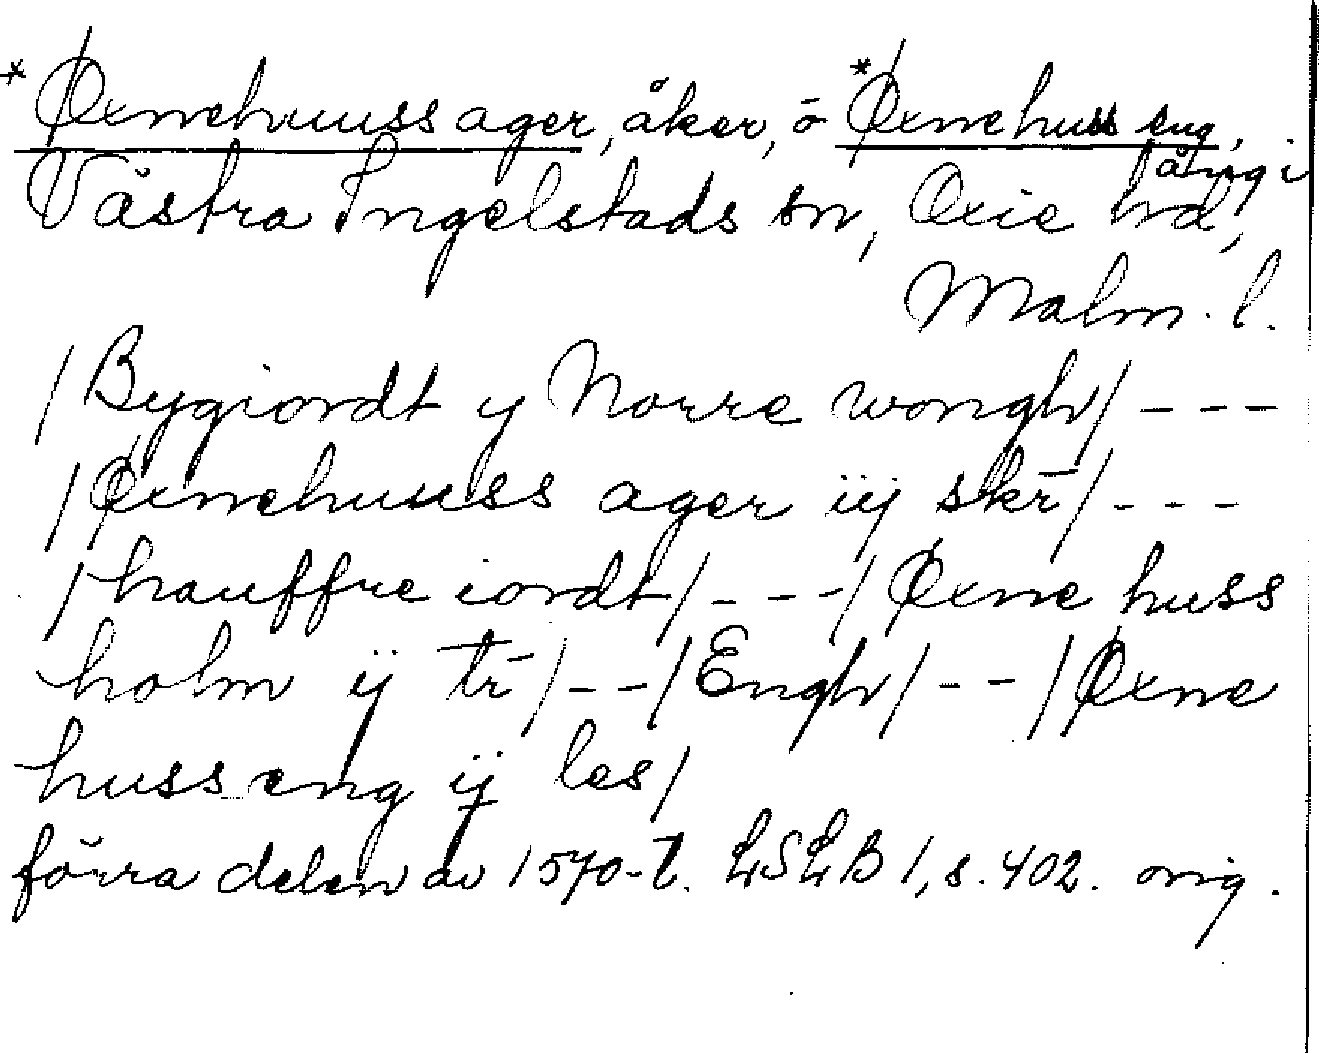 *Øxnehuuss ager, åker, o *Øxnehuss eng,
äng i
Västra Ingelstads sn, Oxie hd,
Malm. l.
/Bygiordt y Norre wongh/ ---
/Øxnehuuss ager iij skr̄/ ---
/hauffre iordt/ ---/ Øxne huss
holm ij tr̄/--/Engh/--/Øxne
huss eng ij les/
förra delen av 1570-t. LSLB 1, s. 402. orig.